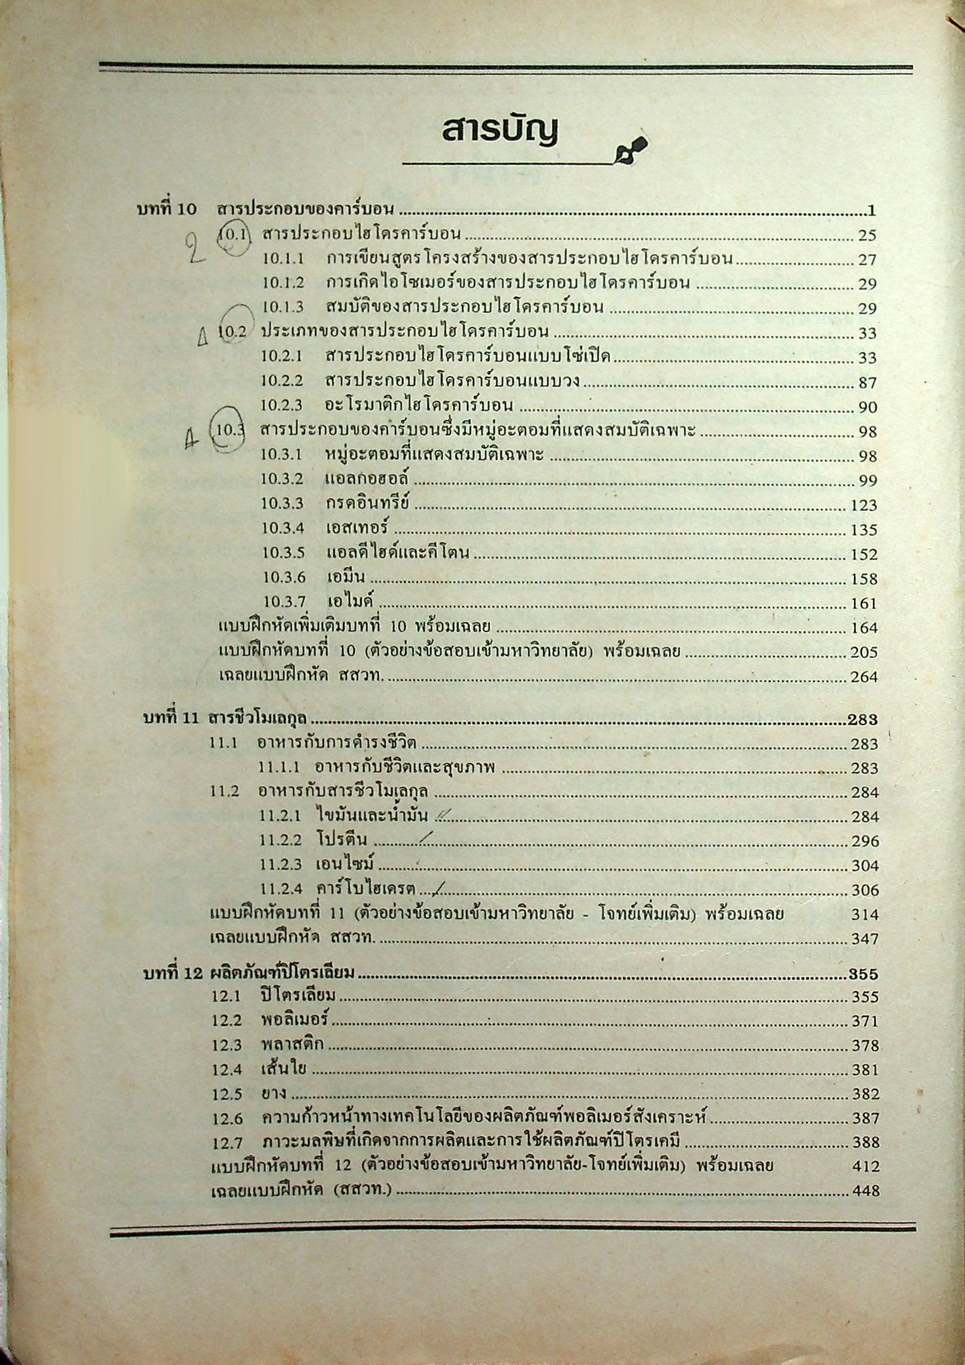 สารบัญ
บทที่ 10 สารประกอบของคาร์บอน ........ 1
2 10.1 สารประกอบไฮโดรคาร์บอน ........ 25
10.1.1 การเขียนสูตรโครงสร้างของสารประกอบไฮโดรคาร์บอน ........ 27
10.1.2 การเกิดไอโซเมอร์ของสารประกอบไฮโดรคาร์บอน ........ 29
10.1.3 สมบัติของสารประกอบไฮโดรคาร์บอน ........ 29
10.2 ประเภทของสารประกอบไฮโดรคาร์บอน ........ 33
10.2.1 สารประกอบไฮโดรคาร์บอนแบบโซ่เปิด ........ 33
10.2.2 สารประกอบไฮโดรคาร์บอนแบบวง ........ 87
10.2.3 อะโรมาติกไฮโดรคาร์บอน ........ 90
10.3 สารประกอบของคาร์บอนซึ่งมีหมู่อะตอมที่แสดงสมบัติเฉพาะ ........ 98
10.3.1 หมู่อะตอมที่แสดงสมบัติเฉพาะ ........ 98
10.3.2 แอลกอฮอล์ ........ 99
10.3.3 กรดอินทรีย์ ........ 123
10.3.4 เอสเทอร์ ........ 135
10.3.5 แอลดีไฮด์และคีโตน ........ 152
10.3.6 เอมีน ........ 158
10.3.7 เอไมด์ ........ 161
แบบฝึกหัดเพิ่มเติมบทที่ 10 พร้อมเฉลย ........ 164
แบบฝึกหัดบทที่ 10 (ตัวอย่างข้อสอบเข้ามหาวิทยาลัย) พร้อมเฉลย ........ 205
เฉลยแบบฝึกหัด สสวท. ........ 264
บทที่ 11 สารชีวโมเลกุล ........ 283
11.1 อาหารกับการดำรงชีวิต ........ 283
11.1.1 อาหารกับชีวิตและสุขภาพ ........ 283
11.2 อาหารกับสารชีวโมเลกุล ........ 284
11.2.1 ไขมันและน้ำมัน ........ 284
11.2.2 โปรตีน ........ 296
11.2.3 เอนไซม์ ........ 304
11.2.4 คาร์โบไฮเดรต ........ 306
แบบฝึกหัดบทที่ 11 (ตัวอย่างข้อสอบเข้ามหาวิทยาลัย - โจทย์เพิ่มเติม) พร้อมเฉลย 314
เฉลยแบบฝึกหัด สสวท. ........ 347
บทที่ 12 ผลิตภัณฑ์ปิโตรเลียม ........ 355
12.1 ปิโตรเลียม ........ 355
12.2 พอลิเมอร์ ........ 371
12.3 พลาสติก ........ 378
12.4 เส้นใย ........ 381
12.5 ยาง ........ 382
12.6 ความก้าวหน้าทางเทคโนโลยีของผลิตภัณฑ์พอลิเมอร์สังเคราะห์ ........ 387
12.7 ภาวะมลพิษที่เกิดจากการผลิตและการใช้ผลิตภัณฑ์ปิโตรเคมี ........ 388
แบบฝึกหัดบทที่ 12 (ตัวอย่างข้อสอบเข้ามหาวิทยาลัย-โจทย์เพิ่มเติม) พร้อมเฉลย 412
เฉลยแบบฝึกหัด (สสวท.) ........ 448